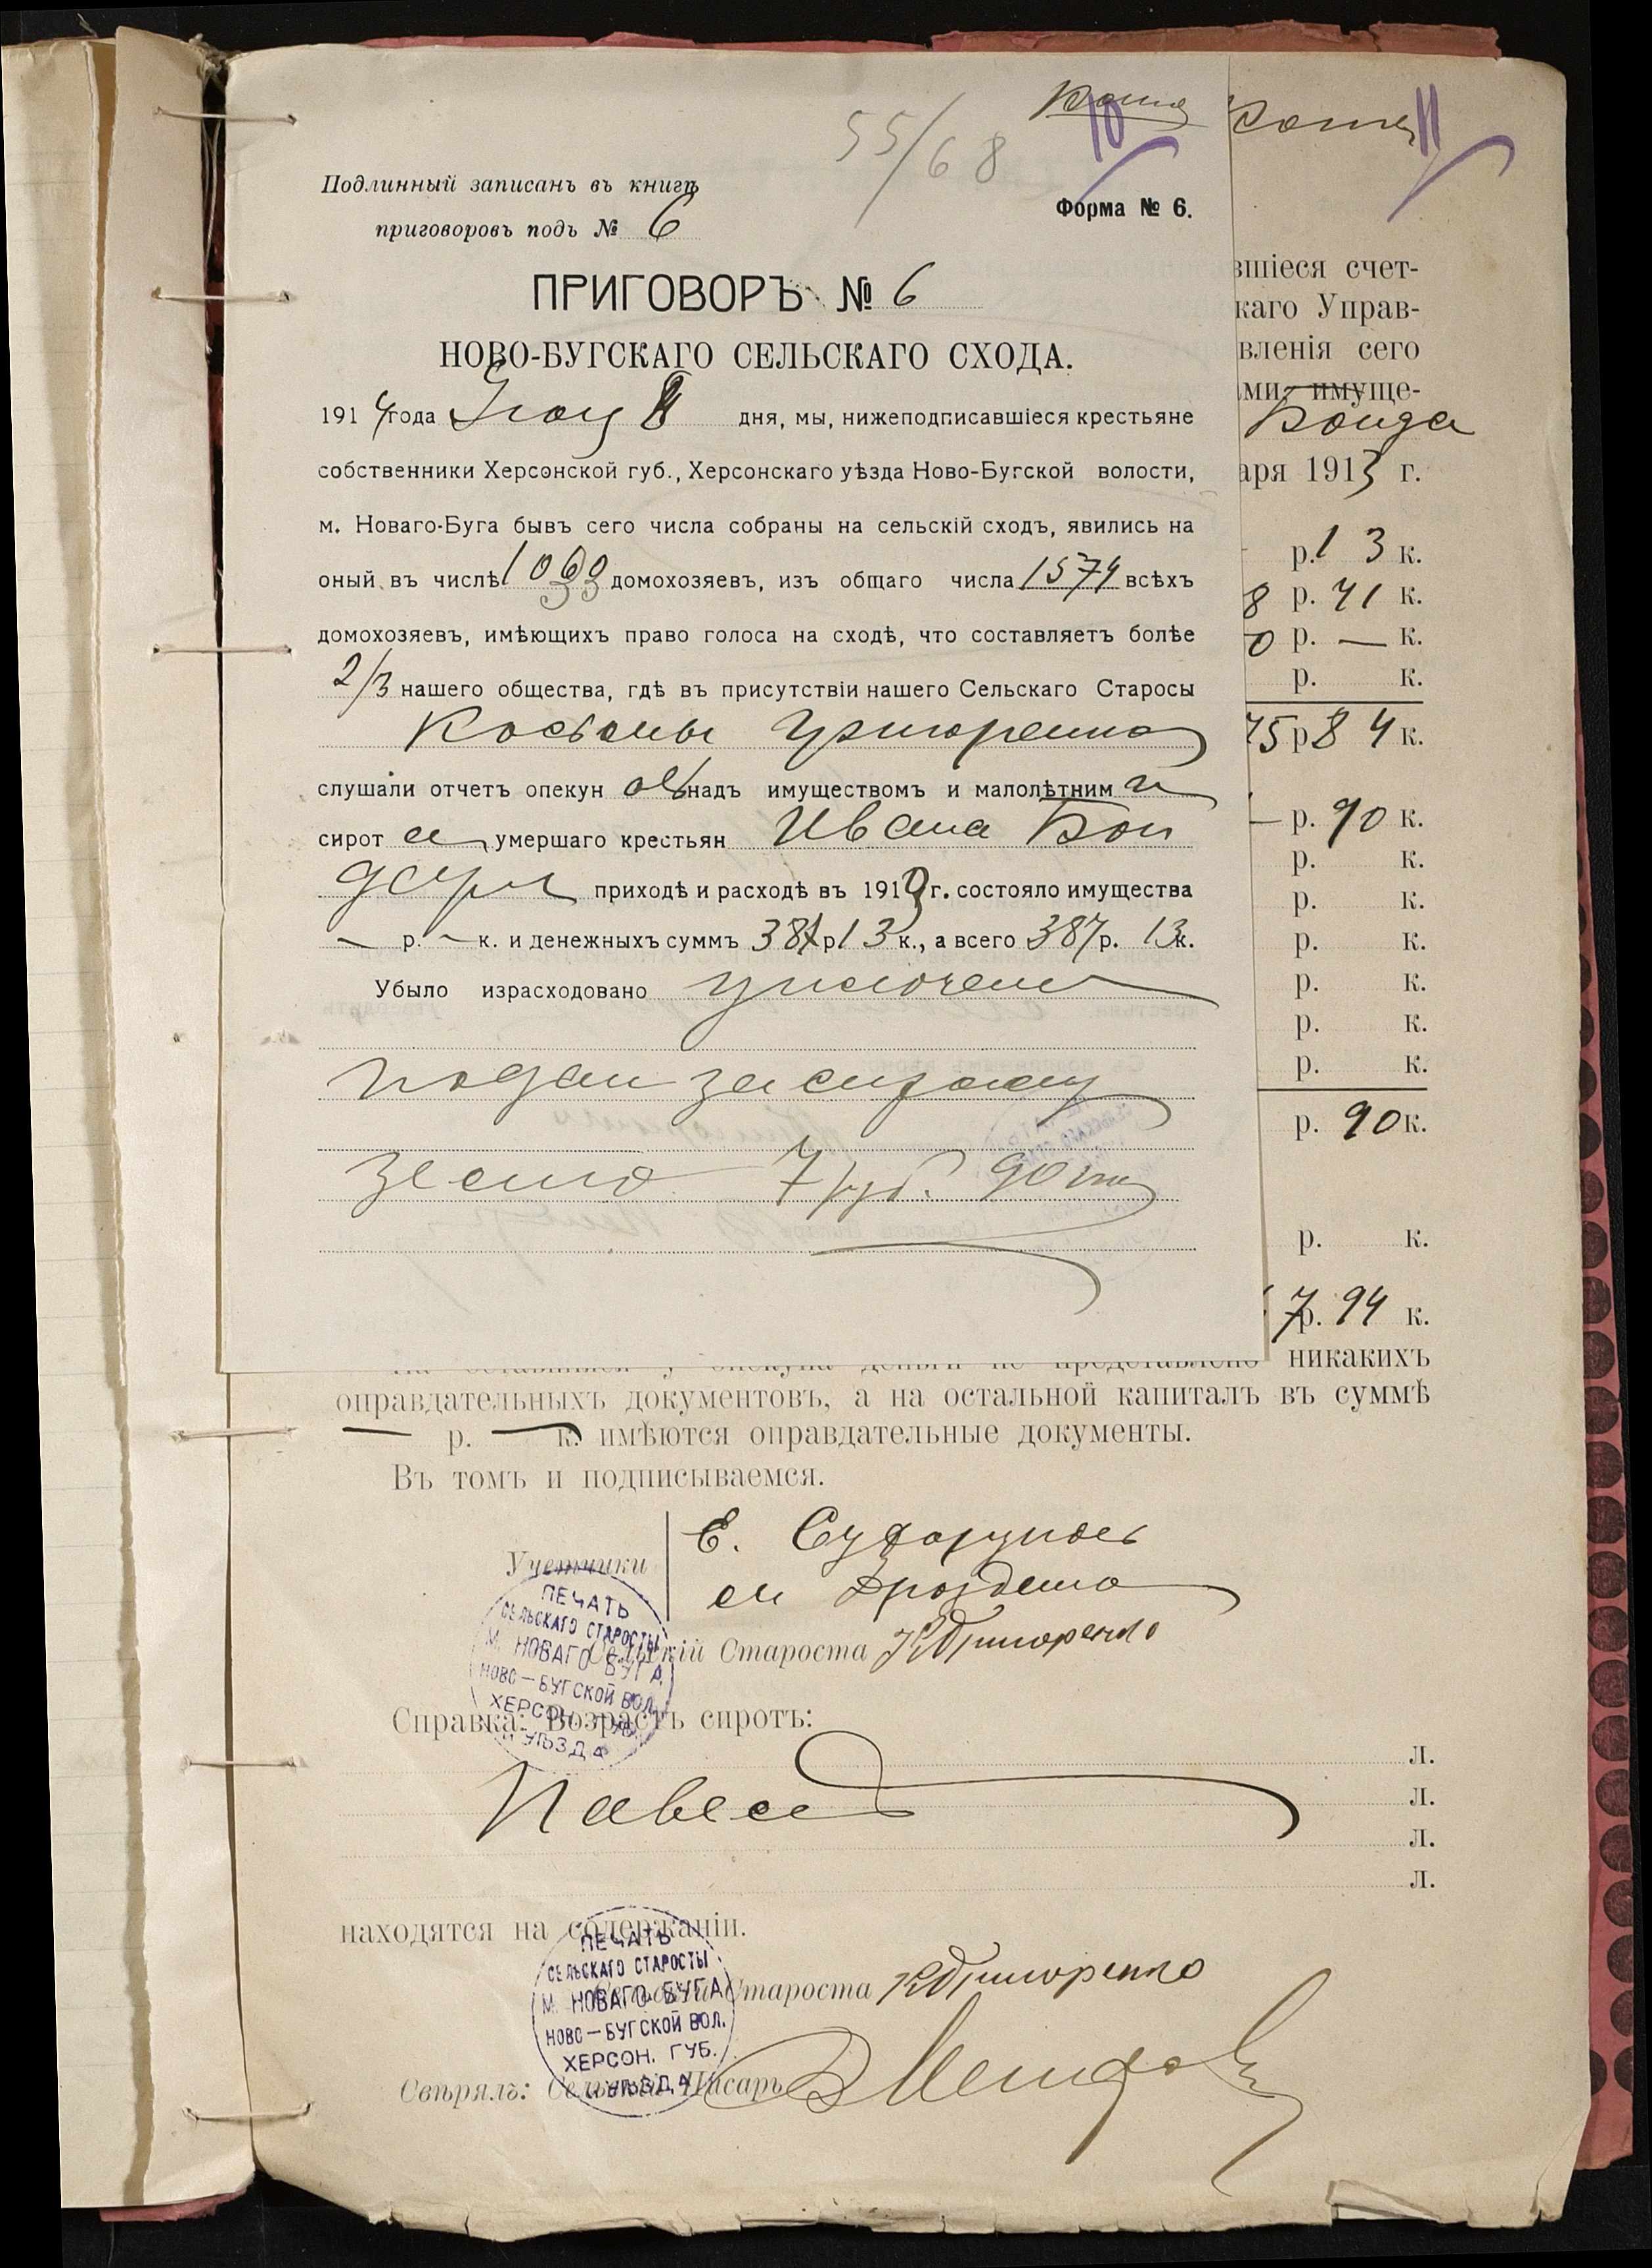 55/68
10
11
Подлинный записанъ въ книгѣ
приговоровъ подъ № 6
Форма № 6.
ПРИГОВОРЪ № 6
НОВО-БУГСКАГО СЕЛЬСКАГО СХОДА.
1914 года 8 дня, мы, нижеподписавшіеся крестьяне
собственники Херсонской губ., Херсонскаго уѣзда Ново-Бугской волости,
м. Новаго-Буга бывъ сего числа собраны на сельскій сходъ, явились на
оный въ числѣ домохозяевъ, изъ общаго числа 1574 всѣхъ
домохозяевъ, имѣющихъ право голоса на сходѣ, что составляетъ болѣе
2/3 нашего общества, гдѣ въ присутствіи нашего Сельскаго Старосы
Косьмы Григоренко
слушали отчетъ опекун овъ надъ имуществомъ и малолѣтним и
сирот а умершаго крестьян Ивана Бон
даря приходѣ и расходѣ въ 1913 г. состояло имущества
— р. — к. и денежныхъ суммъ 387 р 13 к., а всего 387 р. 13 к.
Убыло израсходовано уплочено
подан за сироту
земно 7 руб. 90 к
вшіеся счет-
каго Управ-
вленія сего
ами имуще-
Бонда
аря 1913 г.
р. 13 к.
8 р. 71 к.
0 р. — к.
р. к.
75 р 84 к.
— р. 90 к.
р. к.
р. к.
р. к.
р. к.
р. к.
р. к.
р. 90 к.
р. к.
7 р. 94 к.
На оставшіеся у опекуна деньги не представлено никакихъ
оправдательныхъ документовъ, а на остальной капиталъ въ суммѣ
— р. — к. имѣются оправдательные документы.
Въ томъ и подписываемся.
Учетчики
Е.
Дрозденко
Сельскій Староста КГригоренко
ПЕЧАТЬ
СЕЛЬСКАГО СТАРОСТЫ
М. НОВАГО БУГА,
НОВО—БУГСКОЙ ВОЛ.
ХЕРСОН. ГУБ.
И УѢЗДА
Справка: Возрастъ сиротъ:
л.
Павелъ л.
л.
л.
находятся на содержаніи.
Сельскій Староста КГригоренко
ПЕЧАТЬ
СЕЛЬСКАГО СТАРОСТЫ
М. НОВАГО БУГА,
НОВО—БУГСКОЙ ВОЛ.
ХЕРСОН. ГУБ.
И УѢЗДА
Свѣрялъ: Сельскій Писарь